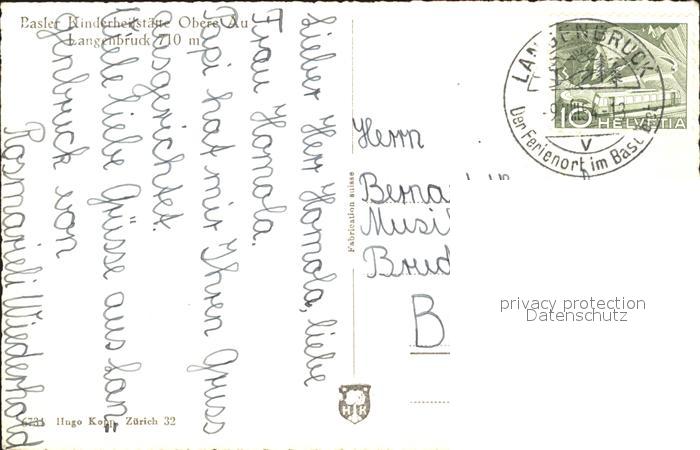 Basler Kinderheilstätte Obere Au
Langenbruck 710 m
Lieber Herr Homola, liebe
Frau Homola.
Papi hat mir Ihren Gruss
ausgerichtet.
Viele liebe Grüsse aus Lan„
genbruck von
Rosmarieli Wiederhold
6731 Hugo Kopp, Zürich 32
Fabrication suisse
HK
Herrn
Berna
Musi
Brud
B
LANGENBRUCK
Der Ferienort im Basl
10 HELVETIA
privacy protection
Datenschutz